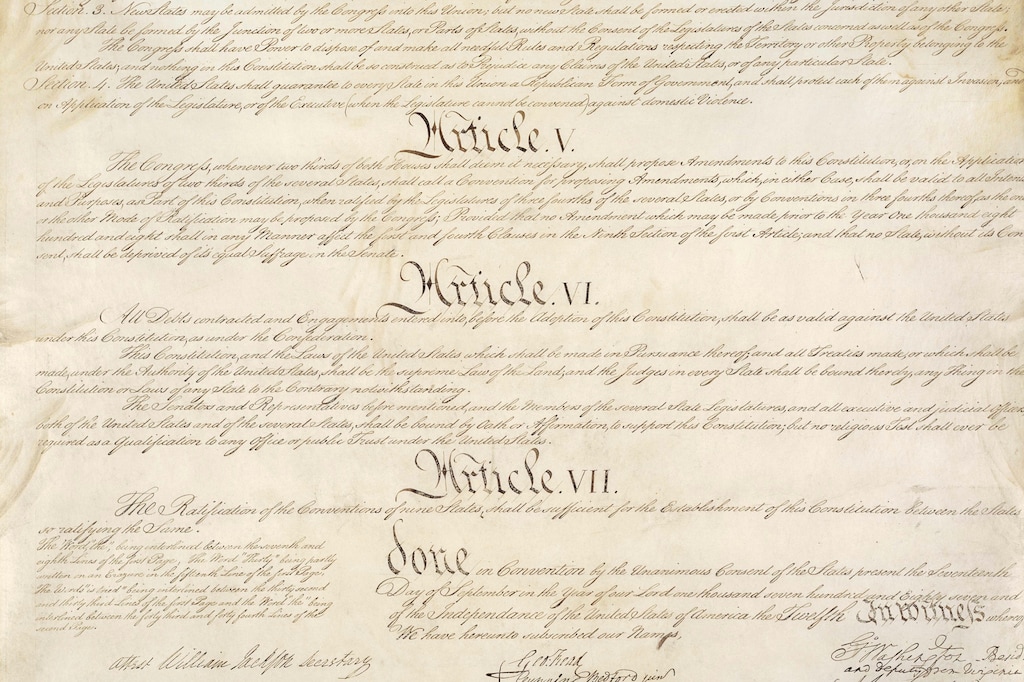 Section. 3. New States may be admitted by the Congress into this Union; but no new State shall be formed or erected within the Jurisdiction of any other State;
nor any State be formed by the Junction of two or more States, or Parts of States, without the Consent of the Legislatures of the States concerned as well as of the Congress.
The Congress shall have Power to dispose of and make all needful Rules and Regulations respecting the Territory or other Property belonging to the
United States; and nothing in this Constitution shall be so construed as to Prejudice any Claims of the United States, or of any particular State.
Section. 4. The United States shall guarantee to every State in this Union a Republican Form of Government, and shall protect each of them against Invasion; and
on Application of the Legislature, or of the Executive (when the Legislature cannot be convened) against domestic Violence.
Article. V.
The Congress, whenever two thirds of both Houses shall deem it necessary, shall propose Amendments to this Constitution, or, on the Application
of the Legislatures of two thirds of the several States, shall call a Convention for proposing Amendments, which, in either Case, shall be valid to all Intents
and Purposes, as Part of this Constitution, when ratified by the Legislatures of three fourths of the several States, or by Conventions in three fourths thereof, as the one
or the other Mode of Ratification may be proposed by the Congress; Provided that no Amendment which may be made prior to the Year One thousand eight
hundred and eight shall in any Manner affect the first and fourth Clauses in the Ninth Section of the first Article; and that no State, without its Con
sent, shall be deprived of its equal Suffrage in the Senate.
Article. VI.
All Debts contracted and Engagements entered into, before the Adoption of this Constitution, shall be as valid against the United States
under this Constitution, as under the Confederation.
This Constitution, and the Laws of the United States which shall be made in Pursuance thereof; and all Treaties made, or which shall be
made, under the Authority of the United States, shall be the supreme Law of the Land; and the Judges in every State shall be bound thereby, any Thing in the
Constitution or Laws of any State to the Contrary notwithstanding.
The Senators and Representatives before mentioned, and the Members of the several State Legislatures, and all executive and judicial Officers,
both of the United States and of the several States, shall be bound by Oath or Affirmation, to support this Constitution; but no religious Test shall ever be
required as a Qualification to any Office or public Trust under the United States.
Article. VII.
The Ratification of the Conventions of nine States, shall be sufficient for the Establishment of this Constitution between the States
so ratifying the Same.
The Word, "the," being interlined between the seventh and
eighth Lines of the first Page, The Word "Thirty" being partly
written on an Erazure in the fifteenth Line of the first Page,
The Words "is tried" being interlined between the thirty second
and thirty third Lines of the first Page and the Word "the" being
interlined between the forty third and forty fourth Lines of the
second Page.
done in Convention by the Unanimous Consent of the States present the Seventeenth
Day of September in the Year of our Lord one thousand seven hundred and Eighty seven and
of the Independance of the United States of America the Twelfth In witness whereof
We have hereunto subscribed our Names,
attest William Jackson Secretary
Geo: Read
Gunning Bedford jun
Go Washington Presidt
and deputy from Virginia